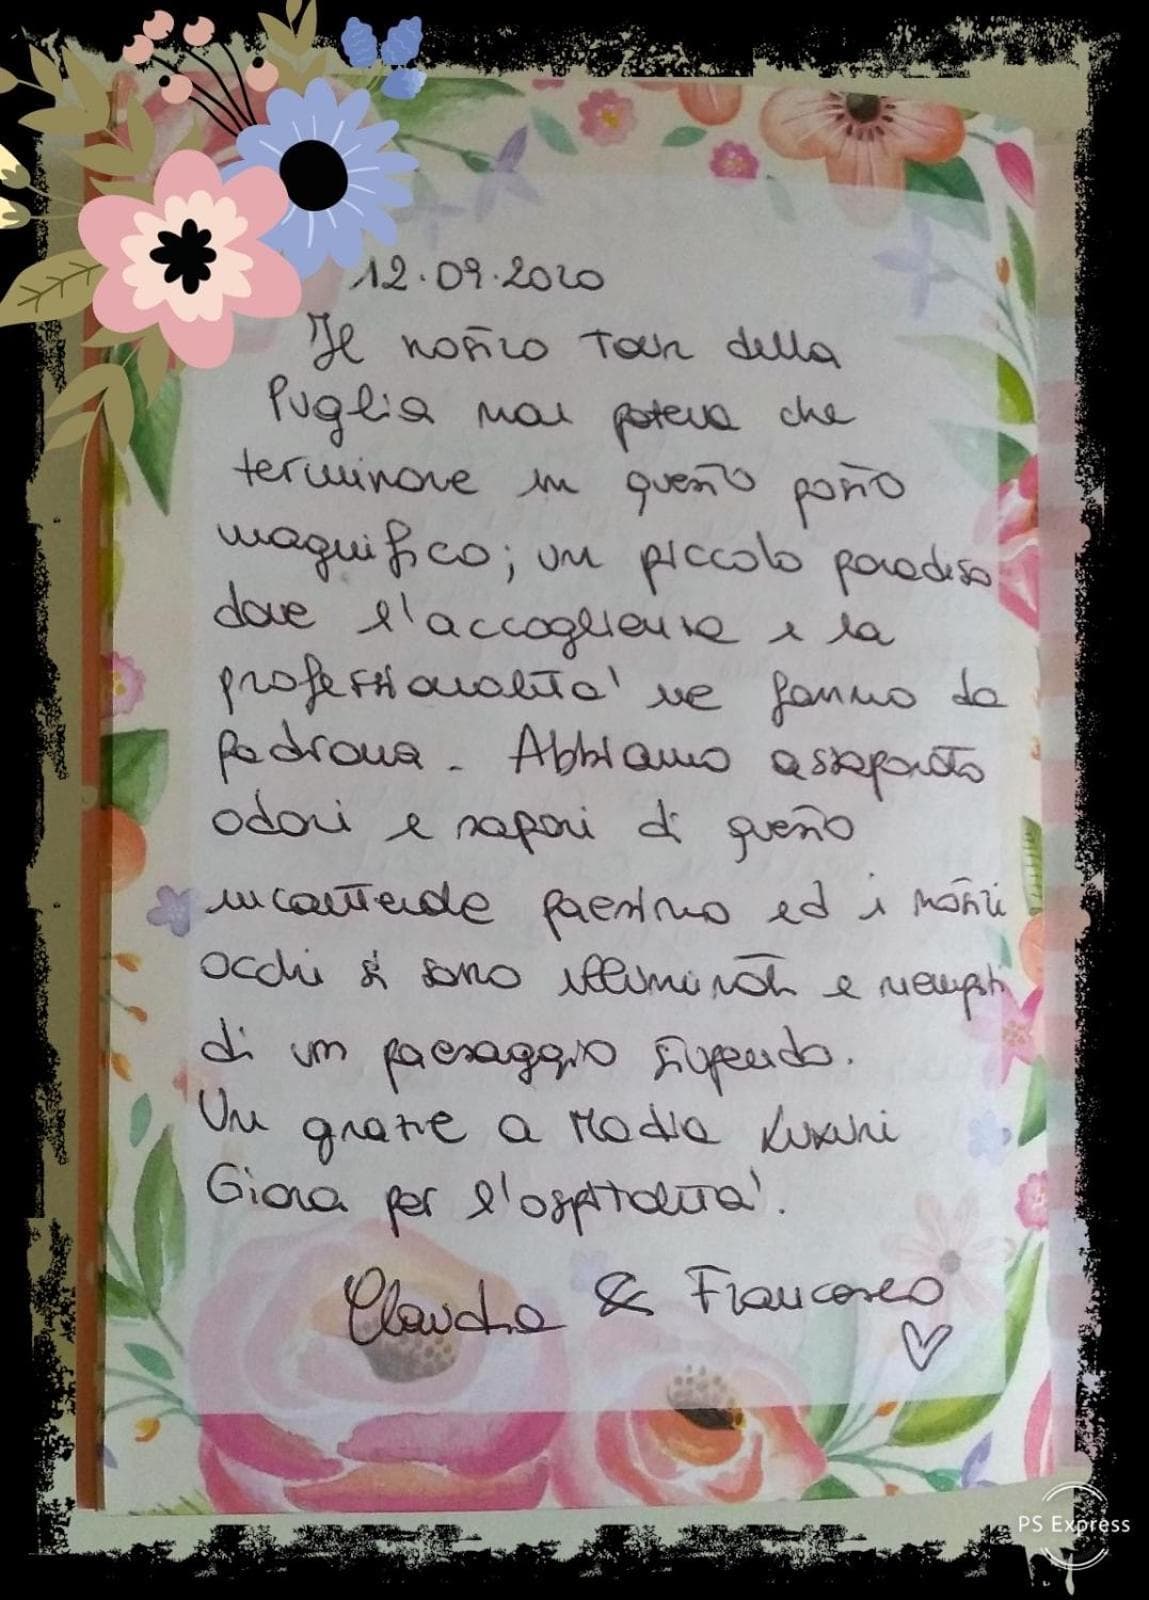 12.09.2020
Il nostro Tour della
Puglia non poteva che
terminare in questo posto
magnifico; un piccolo paradiso
dove l'accoglienza e la
professionalita' ne fanno da
padrona. Abbiamo assaporato
odori e sapori di questo
incantevole paesino ed i nostri
occhi si sono illuminati e riempiti
di un paesaggio stupendo.
Un grazie a Madia
Giona per l'ospitalita'.
Claudia & Francesco
PS Express